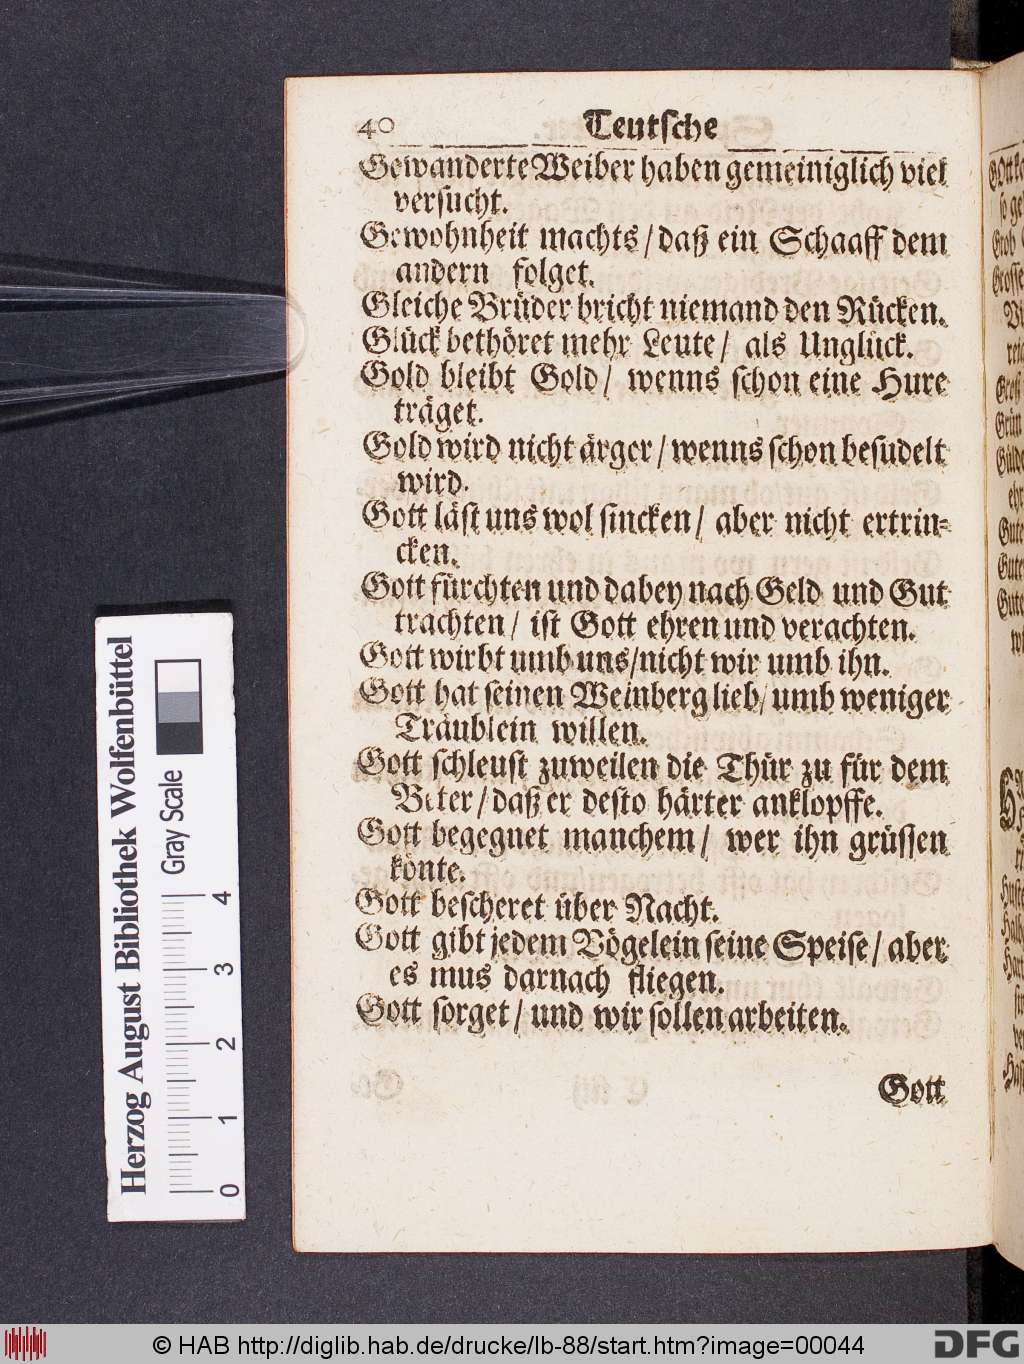 40 Teutsche
Gewanderte Weiber haben gemeiniglich viel
versucht.
Gewohnheit machts / daß ein Schaaff dem
andern folget.
Gleiche Brüder bricht niemand den Rücken.
Glück bethöret mehr Leute / als Unglück.
Gold bleibt Gold / wenns schon eine Hure
träget.
Gold wird nicht ärger / wenns schon besudelt
wird.
Gott läst uns wol sincken / aber nicht ertrin⸗
cken.
Gott fürchten und dabey nach Geld und Gut
trachten / ist Gott ehren und verachten.
Gott wirbt umb uns / nicht wir umb ihn.
Gott hat seinen Weinberg lieb / umb weniger
Träublein willen.
Gott schleust zuweilen die Thür zu für dem
Beter / daß er desto härter anklopffe.
Gott begegnet manchem / wer ihn grüssen
könte.
Gott bescheret über Nacht.
Gott gibt jedem Vögelein seine Speise / aber
es mus darnach fliegen.
Gott sorget / und wir sollen arbeiten.
Gott
Herzog August Bibliothek Wolfenbüttel
Gray Scale
0 1 2 3 4
© HAB http://diglib.hab.de/drucke/lb-88/start.htm?image=00044
DFG